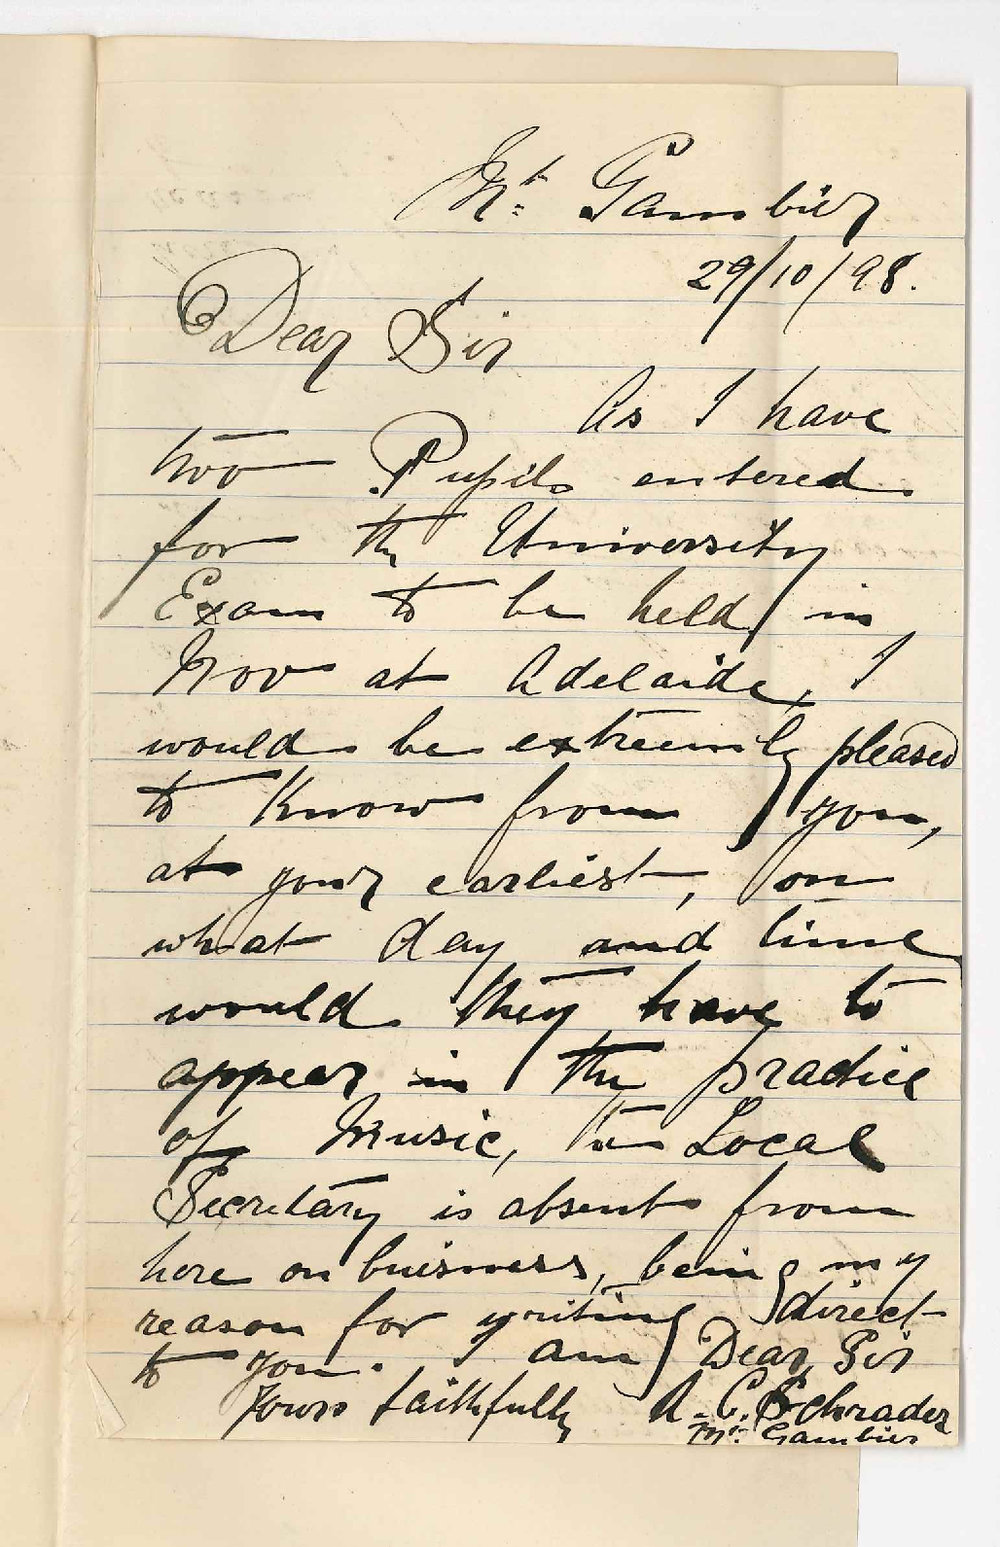 Mt Gambier
29/10/98.
Dear Sir
As I have
two Pupils entered
for the University
Exam to be held in
Nov at Adelaide, I
would be extreemly pleased
to Know from you,
at your earliest, on
what day and time
would they have to
appear in the practice
of Music, the Local
Secretary is absent from
here on buisness, being my
reason for writing direct
to you. I am Dear Sir
Yours faithfully A. C. Schrader
Mt Gambier